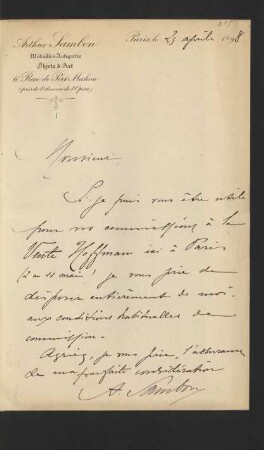 Arthur Sambon
Médailles Antiques
Objets d'Art
6, Rue de Port Mahon
(près de l'Avenue de l'Opéra)
Paris le 25 aprile 1898
Monsieur
Si je puis vous être utile
pour vos commissions à la
Vente Hoffmann ici à Paris
je vous prie de
disposer entièrement de moi
aux conditions habituelles de
commission.
Agréez, je vous prie, l'assurance
de ma parfaite considération
A. Sambon